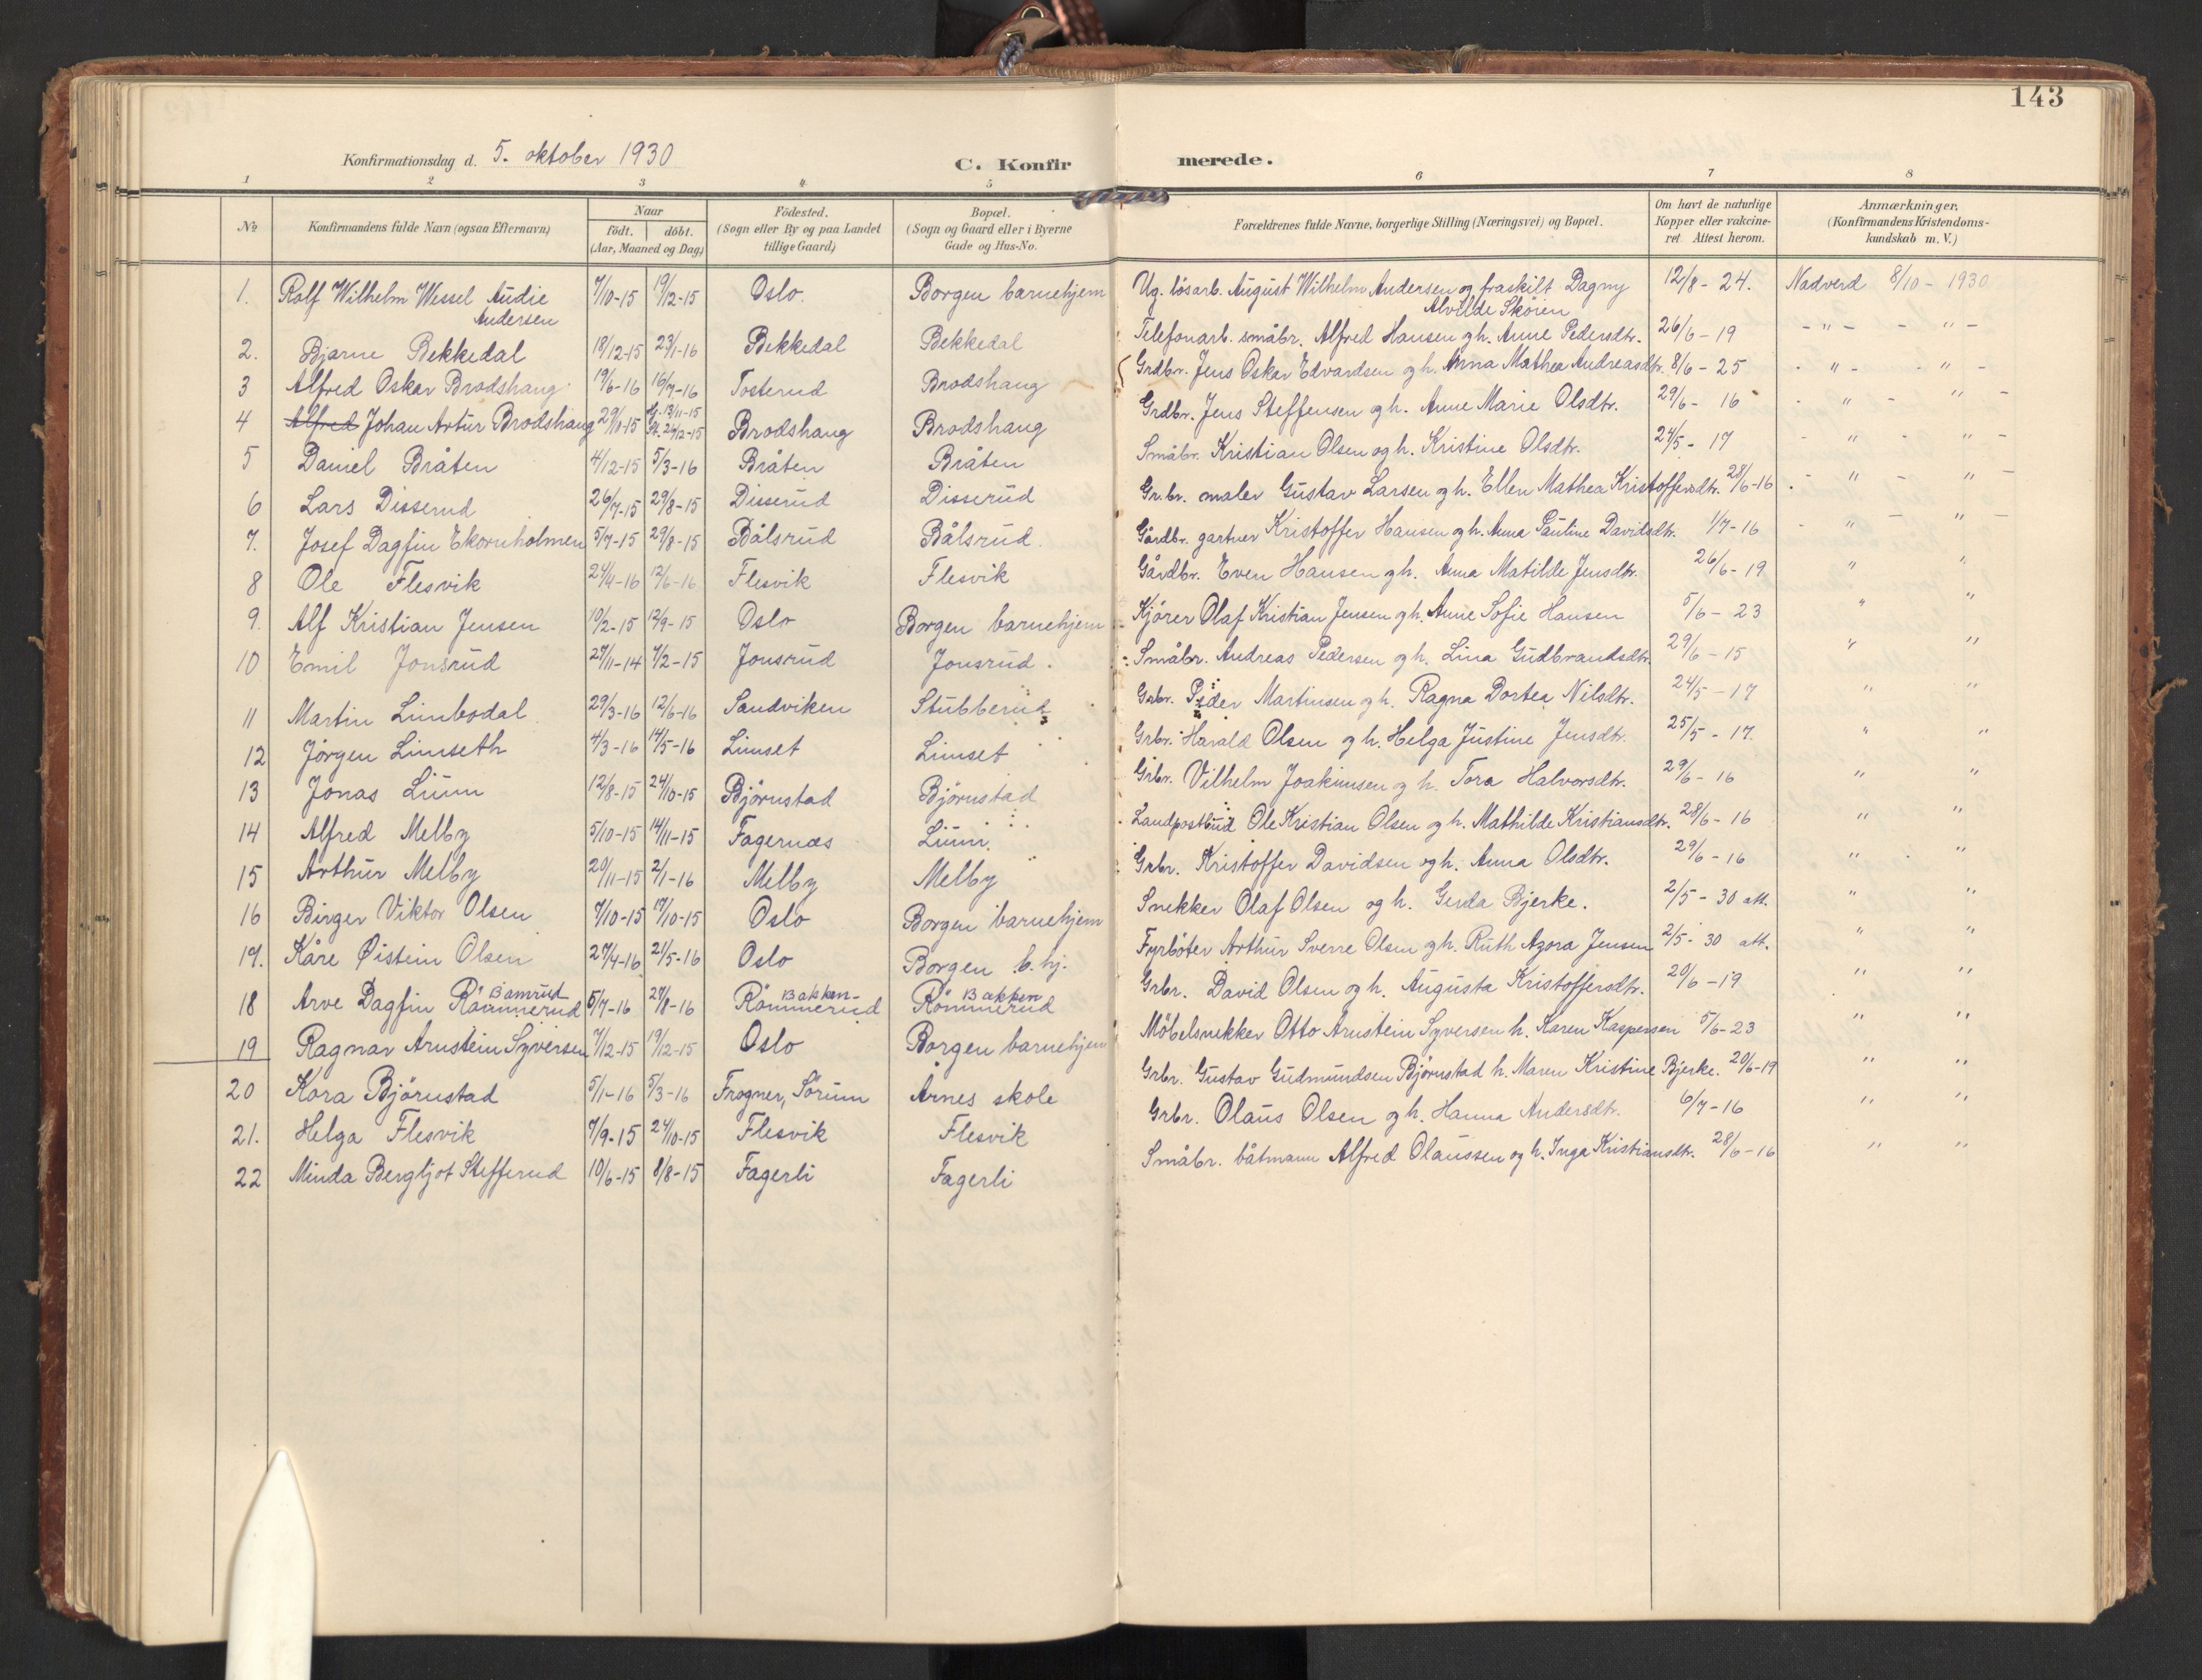 143
Konfirmationsdag d. 5. oktober 1930
C. Konfirmerede.
1 2 3 4 5 6 7 8
No Konfirmandens fulde Navn (ogsaa Efternavn) Naar födt. döbt. (Aar, Maaned og Dag) Födested. (Sogn eller By og paa Landet tillige Gaard) Bopæl. (Sogn og Gaard eller i Byerne Gade og Hus-No. Forældrenes fulde Navne, borgerlige Stilling (Næringsvei) og Bopæl. Om havt de naturlige Kopper eller vakcineret Attest herom. Anmærkninger, (Konfirmandens Kristendomskundskab m. V.)
1. Rolf Wilhelm Wessel Audie Andersen 7/10-15 19/12-15 Oslo. Borgen barnehjem Ug. lösarb. August Wilhelm Andersen og fraskilt Dagny Alvilde Sköien 12/8-24. Nadverd 8/10-1930
2. Bjarne Bekkedal 18/12-15 23/1-16 Bekkedal Bekkedal Telefonarb. småbr. Alfred Hansen og h. Anne Pedersdtr. 26/6-19 -"- - "-
3 Alfred Oskar Brodshaug 19/6-16 16/7-16 Tosterud Brodshaug Grdbr. Jens Oskar Edvardsen og h. Anna Mathea Andreasdtr. 8/6-25 - "- - "-
4 Alfred Johan Artur Brodshaug 29/10-15 Hj. 13/11-15 St. 26/12-15 Brodshaug Brodshaug Grdbr. Jens Steffensen og h. Anne Marie Olsdtr. 29/6-16 - " - " -
5 Daniel Bråten 4/12-15 5/3-16 Bråten Bråten Småbr. Kristian Olsen og h. Kristine Olsdtr. 24/5-17 - " - " -
6 Lars Disserud 26/7-15 29/8-15 Disserud Disserud Gr.br. maler Gustav Larsen og h. Ellen Mathea Kristoffersdtr. 28/6-16 - " - " -
7. Josef Dagfin Ekornholmen 5/7-15 29/8-15 Bålsrud Bålsrud. Gårdbr. gartner Kristoffer Hansen og h. Anna Pauline Davidsdtr. 1/7-16 - " - " -
8 Ole Flesvik 24/4-16 12/6-16 Flesvik Flesvik Gårdbr. Even Hansen og h. Anna Matilde Jensdtr. 26/6-19 " "
9. Alf Kristian Jensen 10/2-15 12/9-15 Oslo Borgen barnehjem Kjörer Olaf Kristian Jensen og h. Anne Sofie Hansen 5/6-23 " "
10 Emil Jonsrud 27/11-14 7/2-15 Jonsrud Jonsrud. Småbr. Andreas Pedersen og h. Lina Gudbrandsdtr. 29/6-15 " "
11 Martin Limbodal 29/3-16 12/6-16 Sandviken Stubberud Grbr. Peder Martinsen og h. Ragna Dortea Nilsdtr. 24/5-17 " "
12 Jörgen Limseth 4/3-16 14/5-16 Limset Limset Grbr. Harald Olsen og h. Helga Justine Jensdtr. 25/5-17. " "
13 Jonas Lium 12/8-15 24/10-15 Björnstad Björnstad Grbr. Vilhelm Joakimsen og h. Tora Halvorsdtr. 29/6-16 " "
14 Alfred Melby 5/10-15 14/11-15 Fagernæs Lium. Landpostbud Ole Kristian Olsen og h. Mathilde Kristiansdtr. 28/6-16 " "
15 Arthur Melby 20/11-15 2/1-16 Melby Melby Grbr. Kristoffer Davidsen og h. Anna Olsdtr. 29/6-16 " "
16 Birger Viktor Olsen 7/10-15 17/10-15 Oslo Borgen barnehjem Snekker Olaf Olsen og h. Gerda Bjerke. 2/5-30 att. " "
17. Kåre Øistein Olsen 27/4-16 21/5-16 Oslo Borgen b.hj. Fyrböter Arthur Sverre Olsen og h. Ruth Azora Jensen 2/5-30 att. " "
18 Arve Dagfin Römmerud Bamrud 5/7-16 27/8-16 Römmerud Bakken- Römmerud Bakken Grbr. David Olsen og h. Augusta Kristoffersdtr. 20/6-19 " "
19 Ragnar Arnstein Syversen 7/12-15 19/12-15 Oslo Borgen barnehjem Möbelsnekker Otto Arnstein Syversen h. Karen Kaspersen 5/6-23 " "
20 Kora Björnstad 5/1-16 5/3-16 Frogner, Sörum Årnes skole Grbr. Gustav Gudmundsen Björnstad h. Maren Kristine Bjerke. 20/6-19 " "
21. Helga Flesvik 7/9-15 24/10-15 Flesvik Flesvik Grbr. Olaus Olsen og h. Hanna Andersdtr. 6/7-16 " "
22 Minda Bergljot Stefferud 10/6-15 8/8-15 Fagerli Fagerli Småbr. båtmann Alfred Olaussen og h. Inga Kristiansdtr. 28/6-16 " "